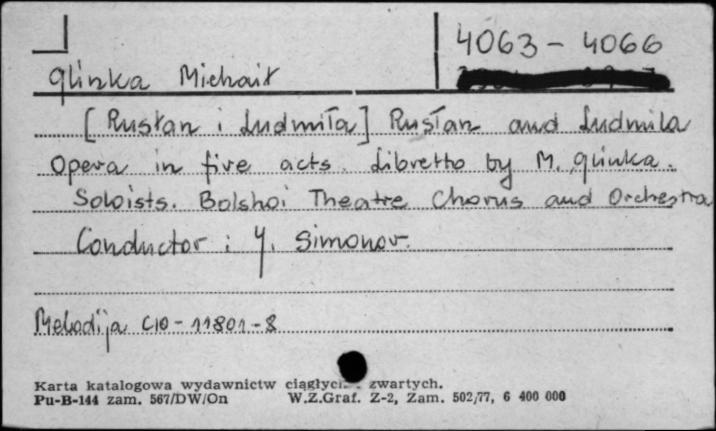 4063 - 4066
Glinka Michaił
[Rusłan i Ludmiła] Rusłan and Ludmila
Opera in five acts. Libretto by M. Glinka.
Soloists. Bolshoi Theatre Chorus and Orchestra
Conductor : Y. Simonov.
Melodija C10 - 11801 - 8
Karta katalogowa wydawnictw ciągłych zwartych.
Pu-B-144 zam. 567/DW/On W.Z.Graf. Z-2, Zam. 502/77, 6 400 000